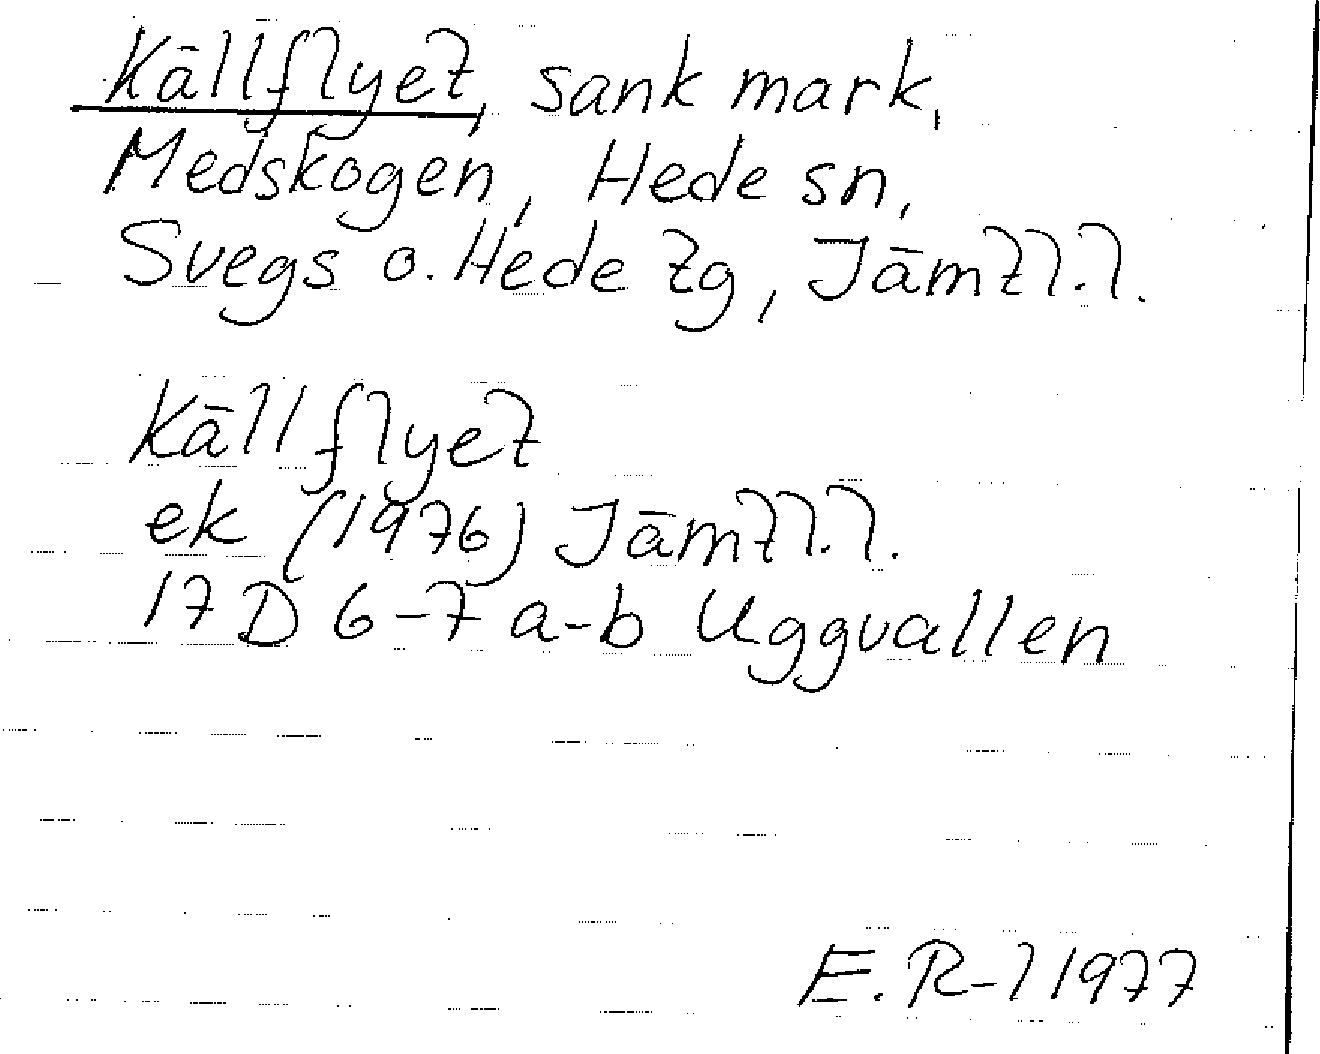 Källflyet, sank mark,
Medskogen, Hede sn,
Svegs o. Hede tg, Jämtl.l.
Källflyet
ek (1976) Jämtl.l.
17 D 6-7 a-b Uggvallen
E. R-l 1977